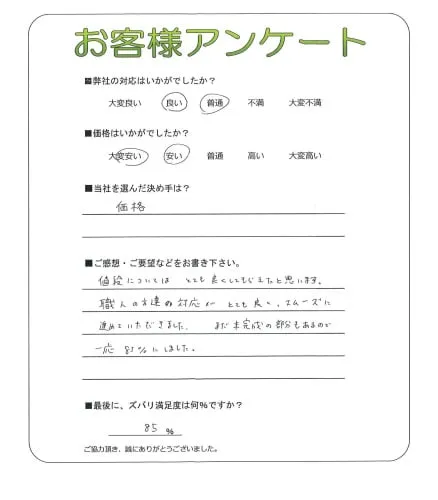 お客様アンケート
■弊社の対応はいかがでしたか？
大変良い 良い 普通 不満 大変不満
■価格はいかがでしたか？
大変安い 安い 普通 高い 大変高い
■当社を選んだ決め手は？
価格
■ご感想・ご要望などをお書き下さい。
値段については とても良くしてもらえたと思います。
職人の方達の対応が とても良く、スムーズに
進めていただきました。 まだ未完成の部分もあるので
一応 85%にしました。
■最後に、ズバリ満足度は何％ですか？
85 %
ご協力頂き、誠にありがとうございました。